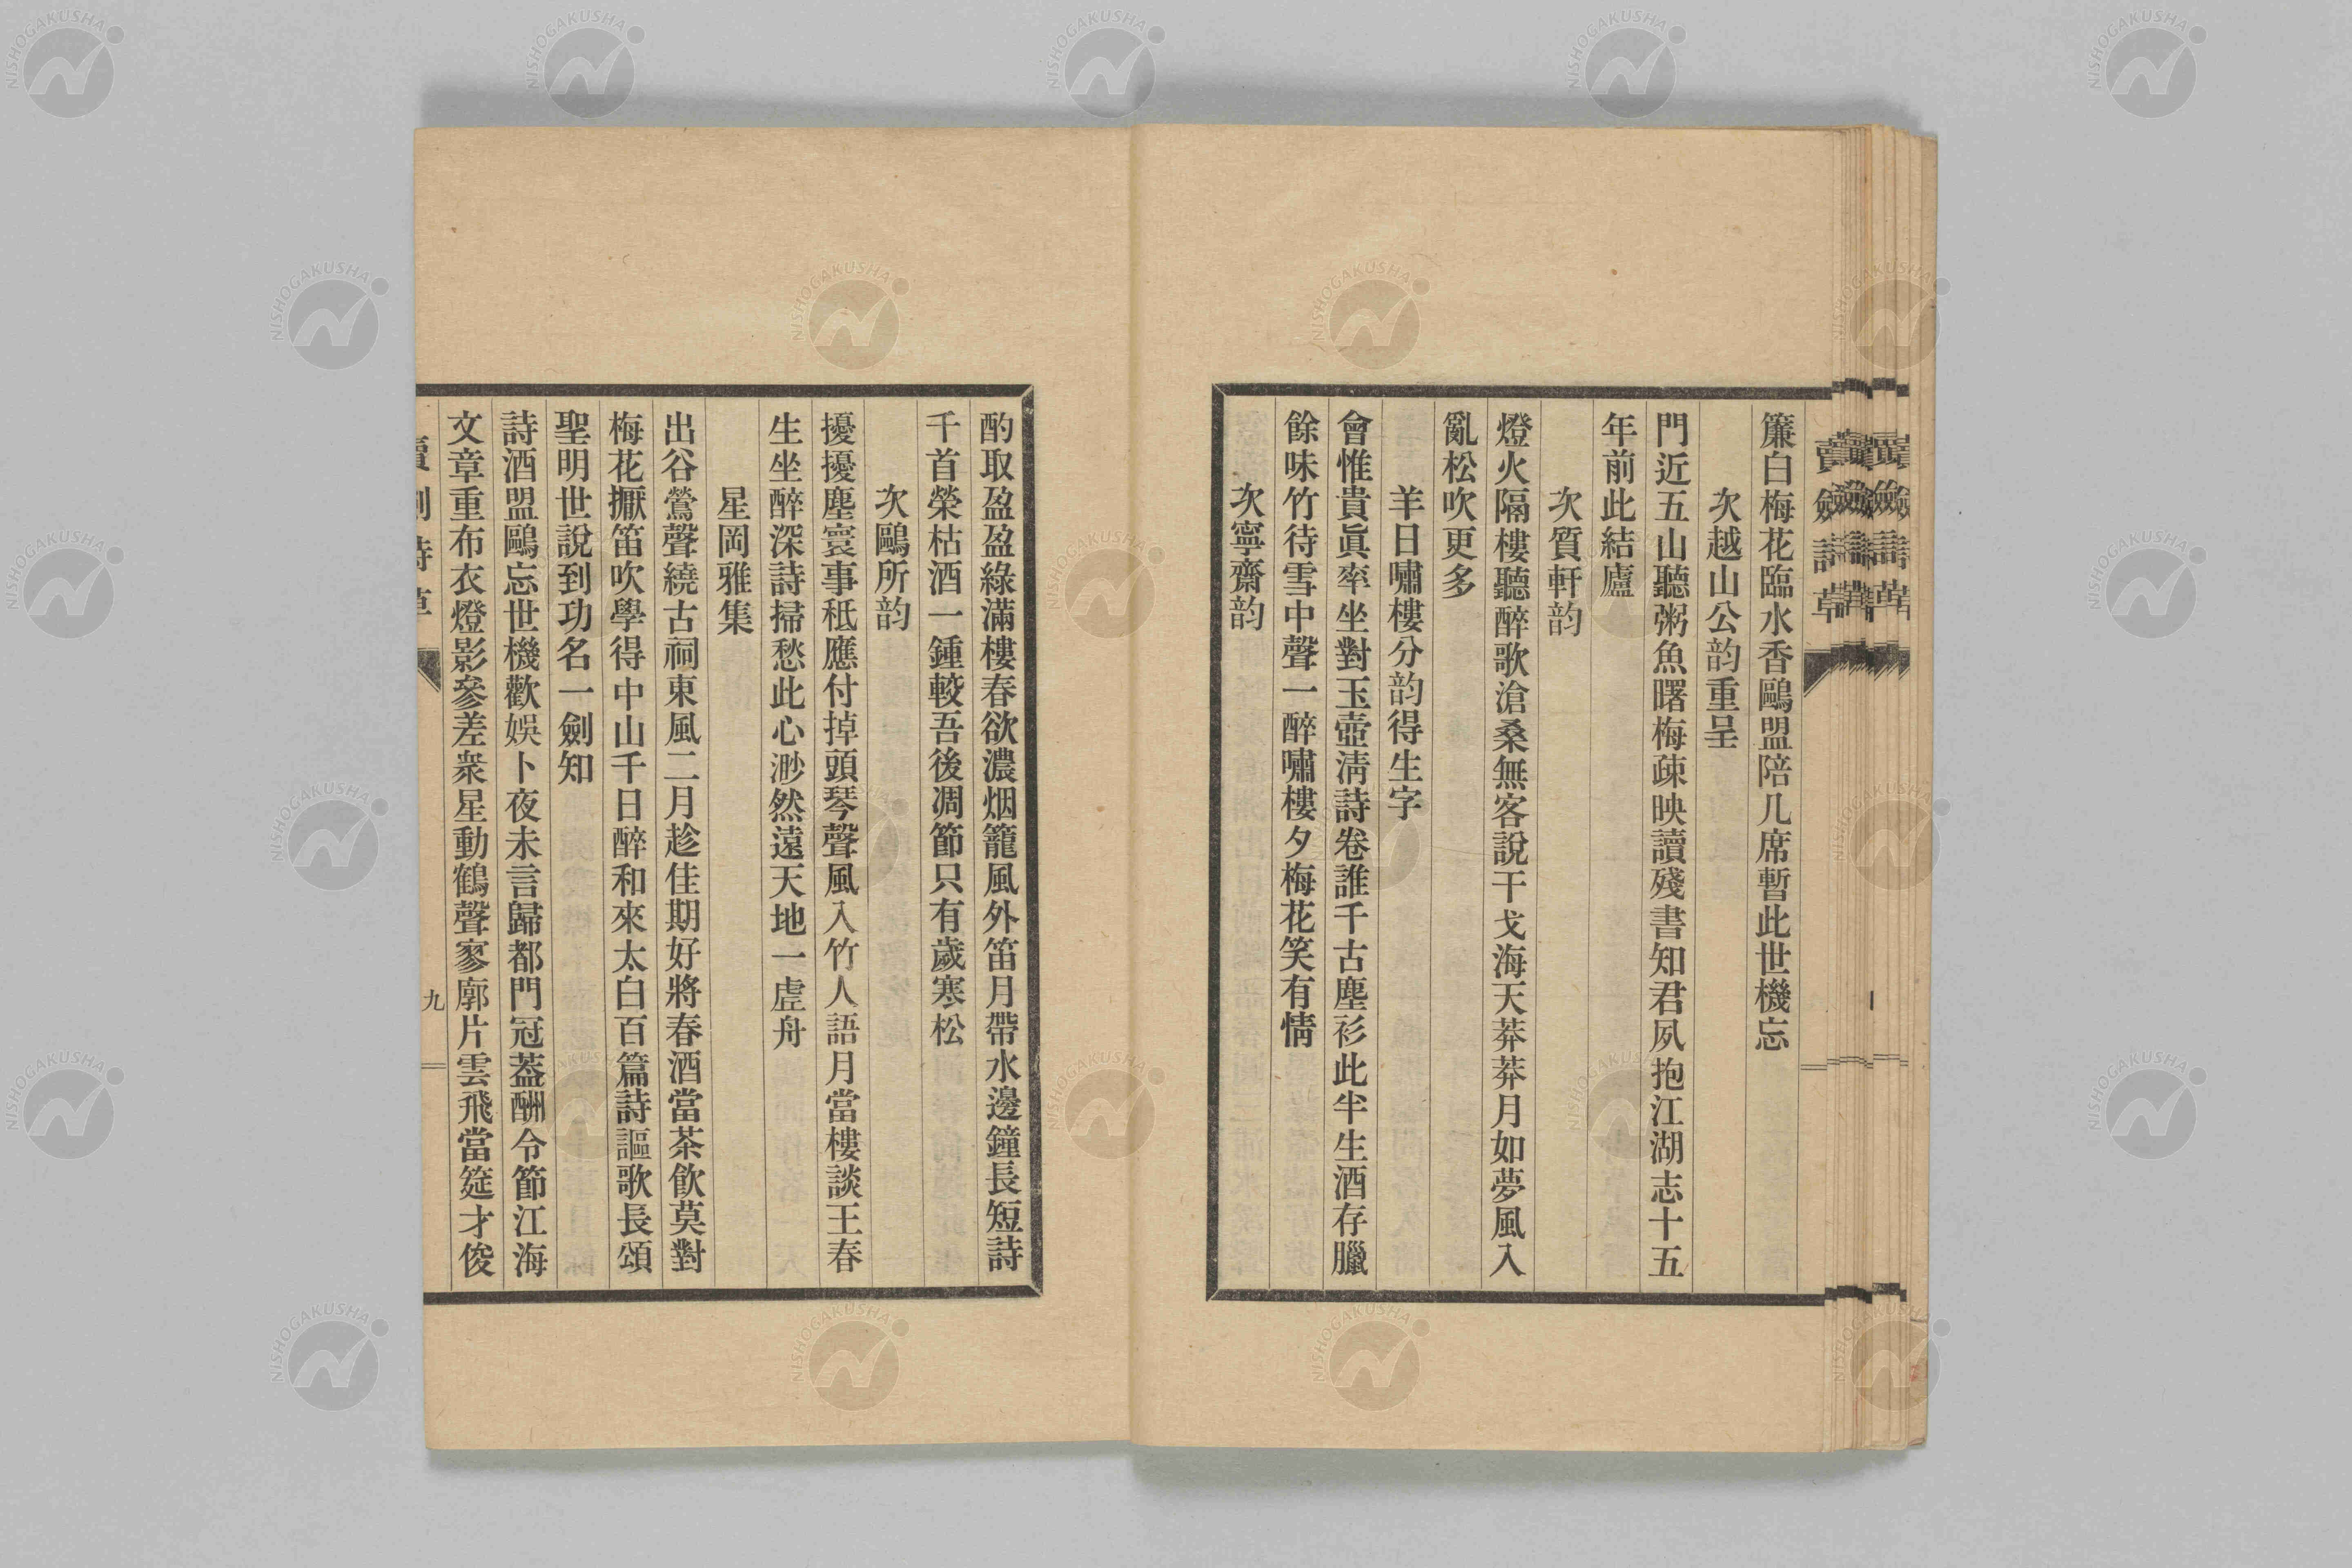 簾白梅花臨水香鷗盟陪几席暫此世機忘
次越山公韵重呈
門近五山聽粥魚曙梅疎映讀殘書知君夙抱江湖志十五
年前此結廬
次質軒韵
燈火隔樓聽醉歌滄桑無客說干戈海天莽莽月如夢風入
亂松吹更多
羊日嘯樓分韵得生字
會惟貴眞率坐對玉壺淸詩卷誰千古塵衫此半生酒存臘
餘味竹待雪中聲一醉嘯樓夕梅花笑有情
次寧齋韵
酌取盈盈綠滿樓春欲濃烟籠風外笛月帶水邊鐘長短詩
千首榮枯酒一鍾較吾後凋節只有歲寒松
次鷗所韵
擾擾塵寰事秪應付掉頭琴聲風入竹人語月當樓談王春
生坐醉深詩掃愁此心渺然遠天地一虛舟
星岡雅集
出谷鶯聲繞古祠東風二月趁佳期好將春酒當茶飮莫對
梅花擫笛吹學得中山千日醉和來太白百篇詩謳歌長頌
聖明世說到功名一劍知
詩酒盟鷗忘世機歡娛卜夜未言歸都門冠蓋酬令節江海
文章重布衣燈影參差衆星動鶴聲寥廓片雲飛當筵才俊
賣劍詩草
九